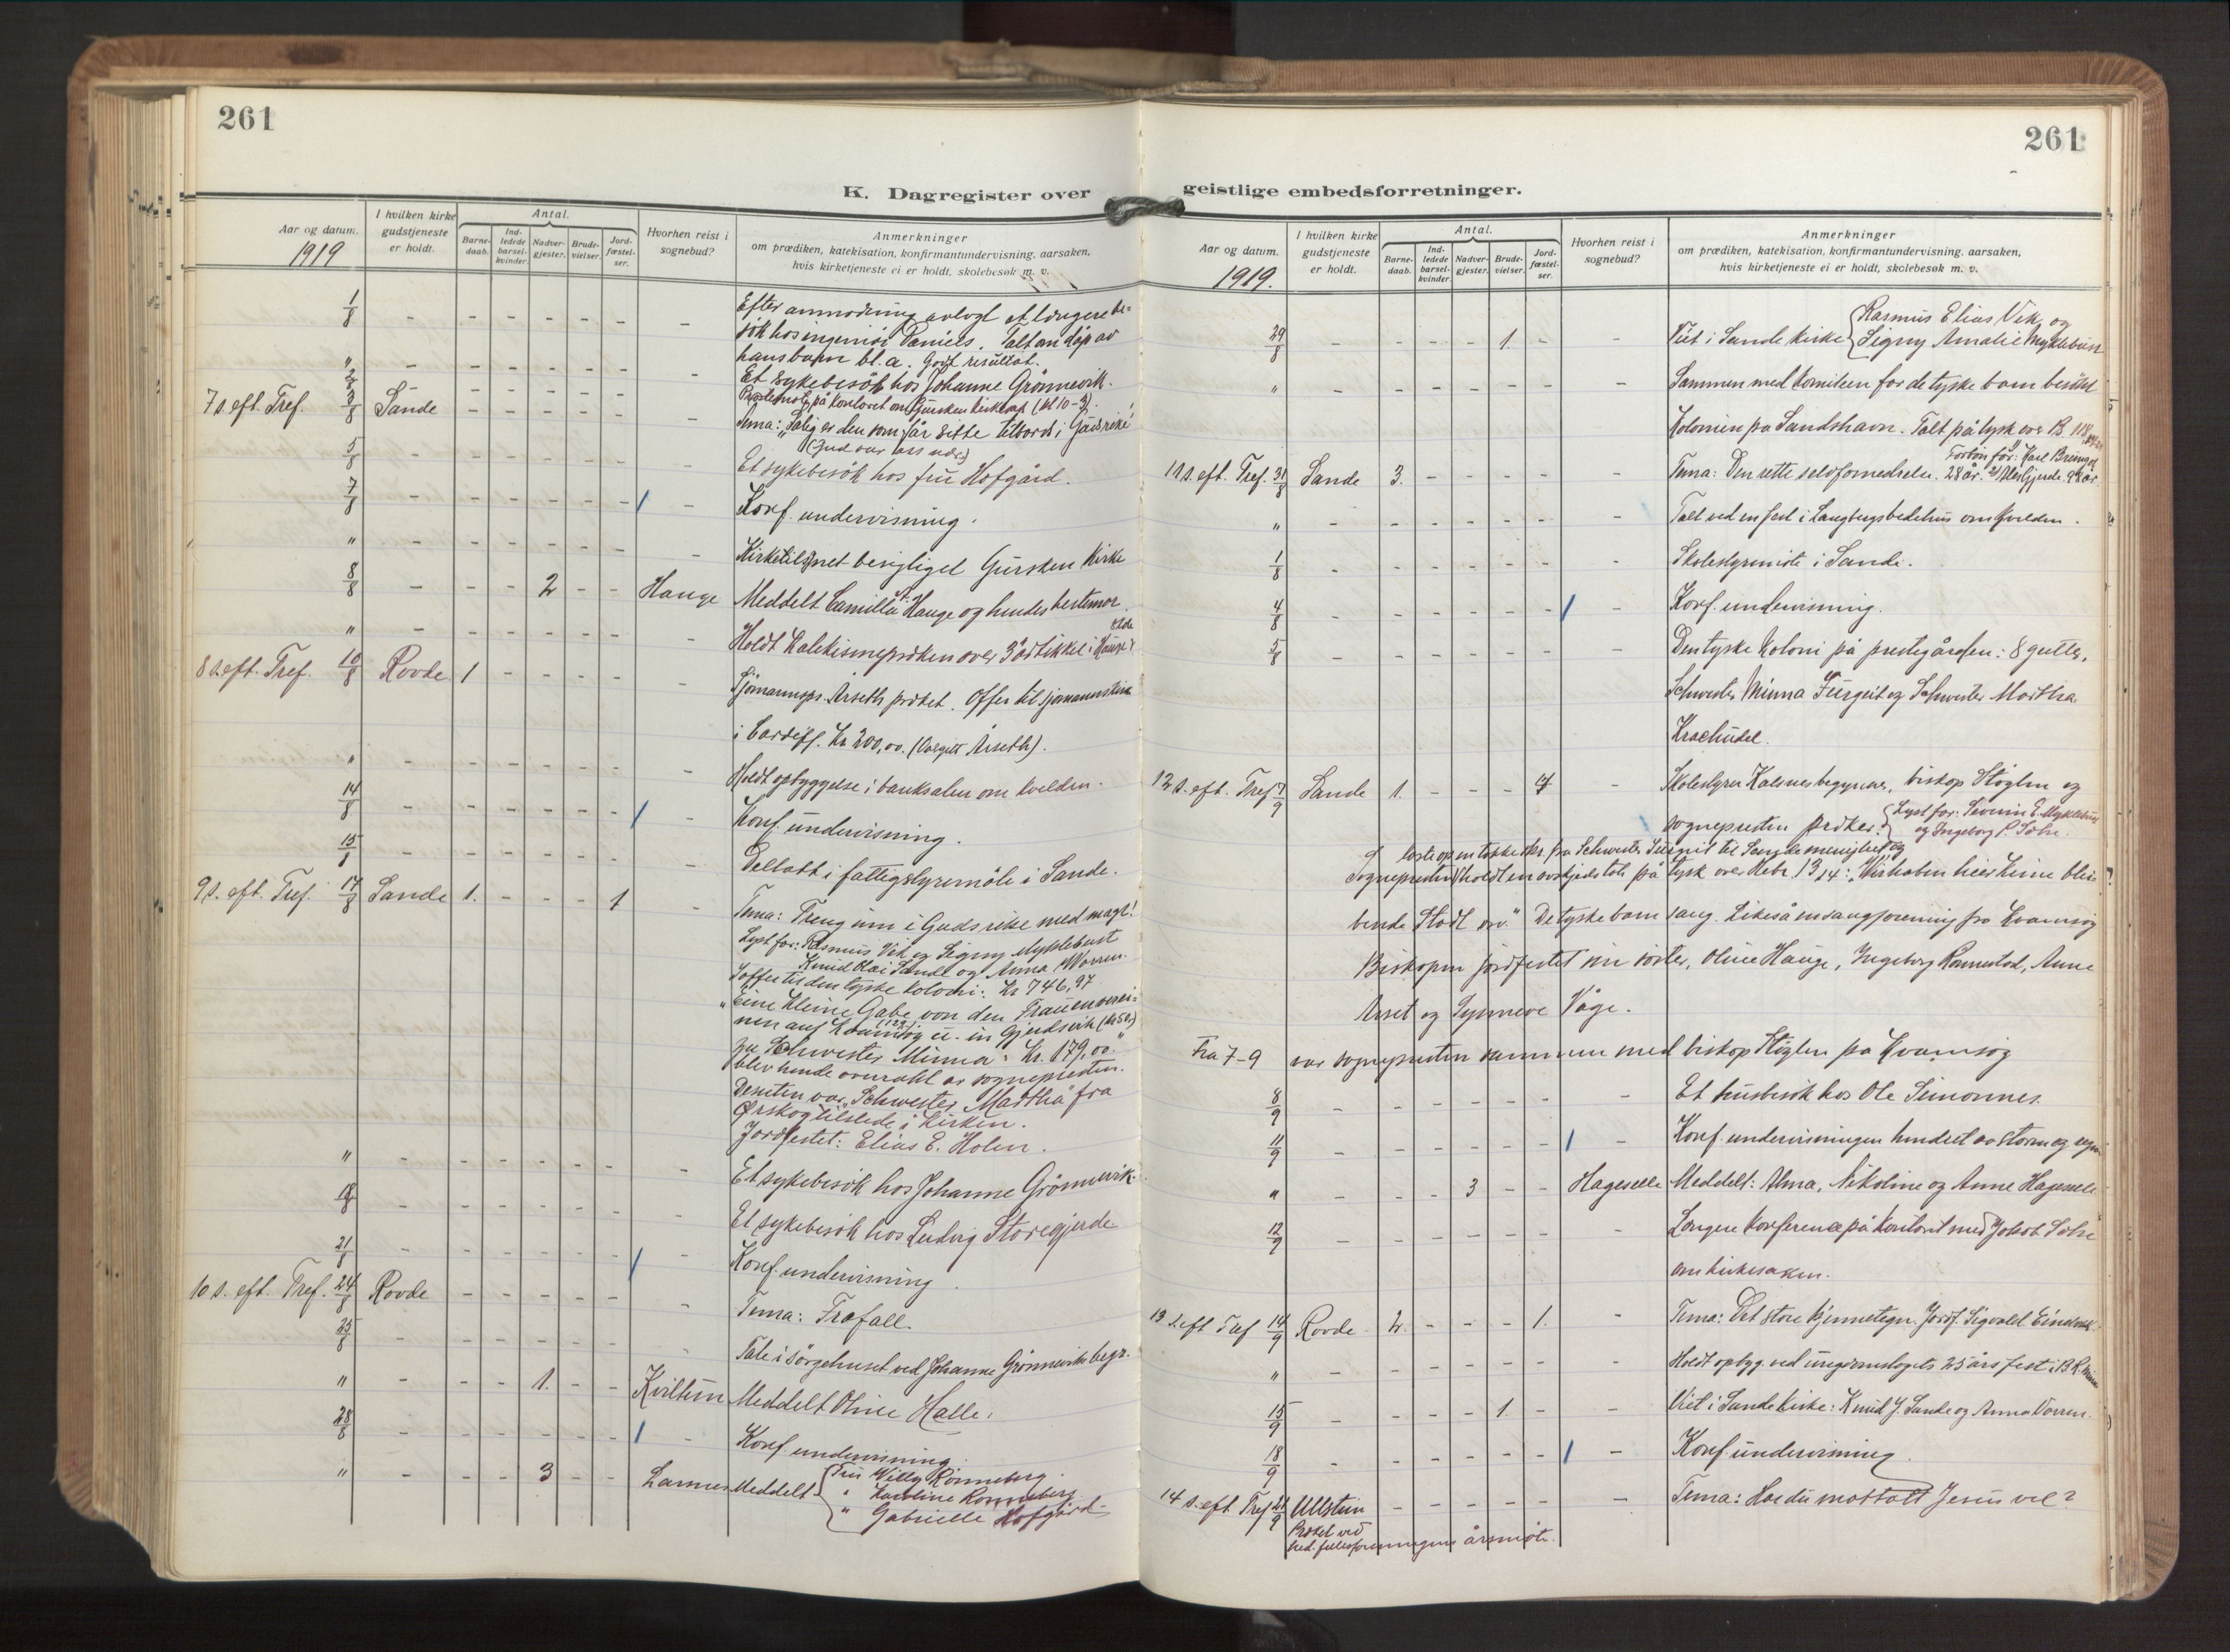 261
K. Dagregister over
Aar og datum.
1919
I hvilken kirke gudstjeneste er holdt.
Antal.
Barne-daab.
Ind-ledede barsel-kvinder.
Nadver-gjester.
Brude-vielser.
Jord-fæstel-ser.
Hvorhen reist i sognebud?
Anmerkninger
om prædiken, katekisation, konfirmantundervisning, aarsaken,
hvis kirketjeneste ei er holdt, skolebesøk m. v.
1/8 - - - - - - - Efter anmodning avlagt et længere be-
søk hos ingeniør Daniels. Talt om dåp av
hans barn bl. a. Godt resultat.
" - - - - - -
2/8 - Et sykebesøk hos Johanne Grönnevik.
på kontoret om Gursken kirkesak (kl 10-3).
7 s. eft. Tref. 3/8 Sande - - - - - - Tema: "Salig er den som får sitte tilbords i Guds rike"
5/8 - - - - - - - Et sykebesøk hos fru Hofgård.
7/8 - - - - - - / - Konf. undervisning.
" - - - - - - - Kirketilsynet besigtiget Gursken Kirke
8/8 - - - 2 - - Hauge Meddelt Camilla Hauge og hendes bestemor.
" - - - - - - - Holdt katekismepræken over 3 artikkel i
8 s. eft. Tref. 10/8 Rovde 1 - - - - - Sjømannspr. Årseth præket. Offer til sjømannskirken
i Cardiff. Kr 200,00. (Avgitt Årseth).
" - - - - - - - Holdt opbyggelse i banksalen om kvelden.
14/8 - - - - - - / - Konf. undervisning.
15/8 - - - - - - - Deltatt i fattigstyremøte i Sande.
9 s. eft. Tref. 17/8 Sande 1. - - - - 1 - Tema: Treng inn i Guds rike med magt!
Lyst for: Rasmus Vik og Signy Myklebust
Knud Sande og Anna Worren.
I offer til den tyske koloni: Kr 746,97
"Eine kleine Gabe von den Frauenverei-
nen auf Kvamsøy u. in Gjerdsvik (kr 50)
zu Schwester Minna: Kr. 179,00."
blev hende overrakt av sognepresten.
Desuten var "Schwester Martha" fra
Ørskog tilstede i kirken.
Jordfestet: Elias E. Holen.
" - - - - - - - Et sykebesøk hos Johanne Grönnevik.
18/8 - - - - - - - Et sykebesøk hos Ludvig Storegjerde
21/8 - - - - - - / - Konf. undervisning.
10 s. eft. Tref. 24/8 Rovde - - - - - - - Tema: Frafall.
25/8 - - - - - - - Tale i sørgehuset ved Johanne Grönneviks begr.
" - - - 1. - - Kviltun Meddelt Oline Halle.
28/8 - - - - - - / - Konf. undervisning.
" - - - 3 - - Larsnes Meddelt { Fru Willy Rønneberg.
" Karoline Rønneberg
" Gabrielle Hofgård
261
geistlige embedsforretninger.
Aar og datum.
1919.
I hvilken kirke gudstjeneste er holdt.
Antal.
Barne-daab.
Ind-ledede barsel-kvinder.
Nadver-gjester.
Brude-vielser.
Jord-fæstel-ser.
Hvorhen reist i sognebud?
Anmerkninger
om prædiken, katekisation, konfirmantundervisning, aarsaken,
hvis kirketjeneste ei er holdt, skolebesøk m. v.
29/8 - - - - 1. - - Viet i Sande kirke { Rasmus Elias Vik og
Signy Amalie Myklebust
" - - - - - - - Sammen med komiteen for de tyske barn besøkt
kolonien på Sandshavn. Talt på tysk over
11 s. eft. Tref. 31/8 Sande 3. - - - - - Tema: Den rette selvfornedrelse. 28 år.
" - - - - - - - Talt ved en fest i bedehus om kvelden.
1/8 - - - - - - - Skolestyremøte i Sande.
4/8 - - - - - - / - Konf. undervisning.
5/8 - - - - - - - Den tyske koloni på prestegården: 8 gutter,
Schwester Minna og Schwester Martha
12 s. eft. Tref 7/9 Sande 1. - - - 4 - begynner, biskop Støylen og
sognepresten præker. { Lyst for: Severin E. Myklebust
og Ingeborg P.
Sognepresten holdt en avskjeds tale på tysk over Hebr. 13,14: "Wir haben hier keine blei-
bende Stadt osv." De tyske barn sang. Likeså en sangforening fra Kvamsøy
Biskopen jordfestet Oline Hauge, Ingeborg Rønnestad, Anne
og Synneve Våge.
Fra 7-9 var sognepresten sammen med biskop Støylen på Kvamsøy
8/9 - - - - - - - Et husbesøk hos Ole Simonnes.
11/9 - - - - - - / - Konf. undervisningen hindret av storm og regn
" - - - 3 - - Hageselle Meddelt: Alma, Nikoline og Anne Hageselle
12/9 - - - - - - - Længere konferense på kontoret med Jakob
om kirkesaken.
13 s. eft Tref 14/9 Rovde 2. - - - 1. - Tema: Det store kjennetegn. Jordf. Sigvald
" - - - - - - - Holdt opbyg. ved ungdomslagets 25 års fest i
15/9 - - - - 1. - - Viet i Sande kirke: Knud J. Sande og Anna Vorren.
18/9 - - - - - - / - Konf. undervisning.
14 s. eft Tref 21/9 Ullstein - - - - - - Tema: Har du mottatt Jesus vel?
Præket ved
årsmøte.